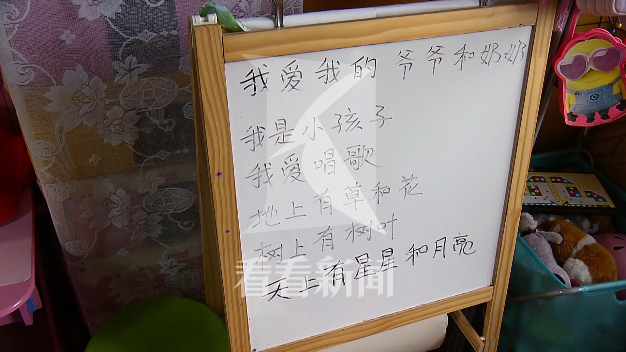 我爱我的爷爷和奶奶
我是小孩子
我爱唱歌
地上有草和花
树上有树叶
天上有星星和月亮
看看新聞